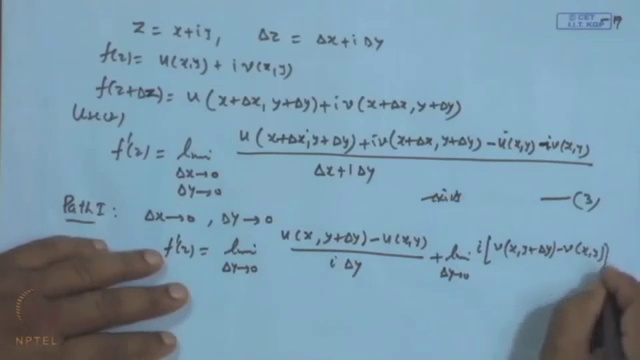 © CET
I.I.T. KGP
z = x+iy, Δz = Δx+iΔy
f(z) = u(x,y) + i v(x,y)
f(z+Δz) = u(x+Δx, y+Δy) + i v(x+Δx, y+Δy)
f'(z) = lim Δx→0 Δy→0 u(x+Δx, y+Δy) + i v(x+Δx, y+Δy) - u(x,y) - i v(x,y) / Δx + i Δy
exists —(3)
Path I: Δx→0, Δy→0
f'(z) = lim Δy→0 u(x, y+Δy) - u(x,y) / i Δy + lim Δy→0 i[v(x, y+Δy) - v(x,y)]
NPTEL